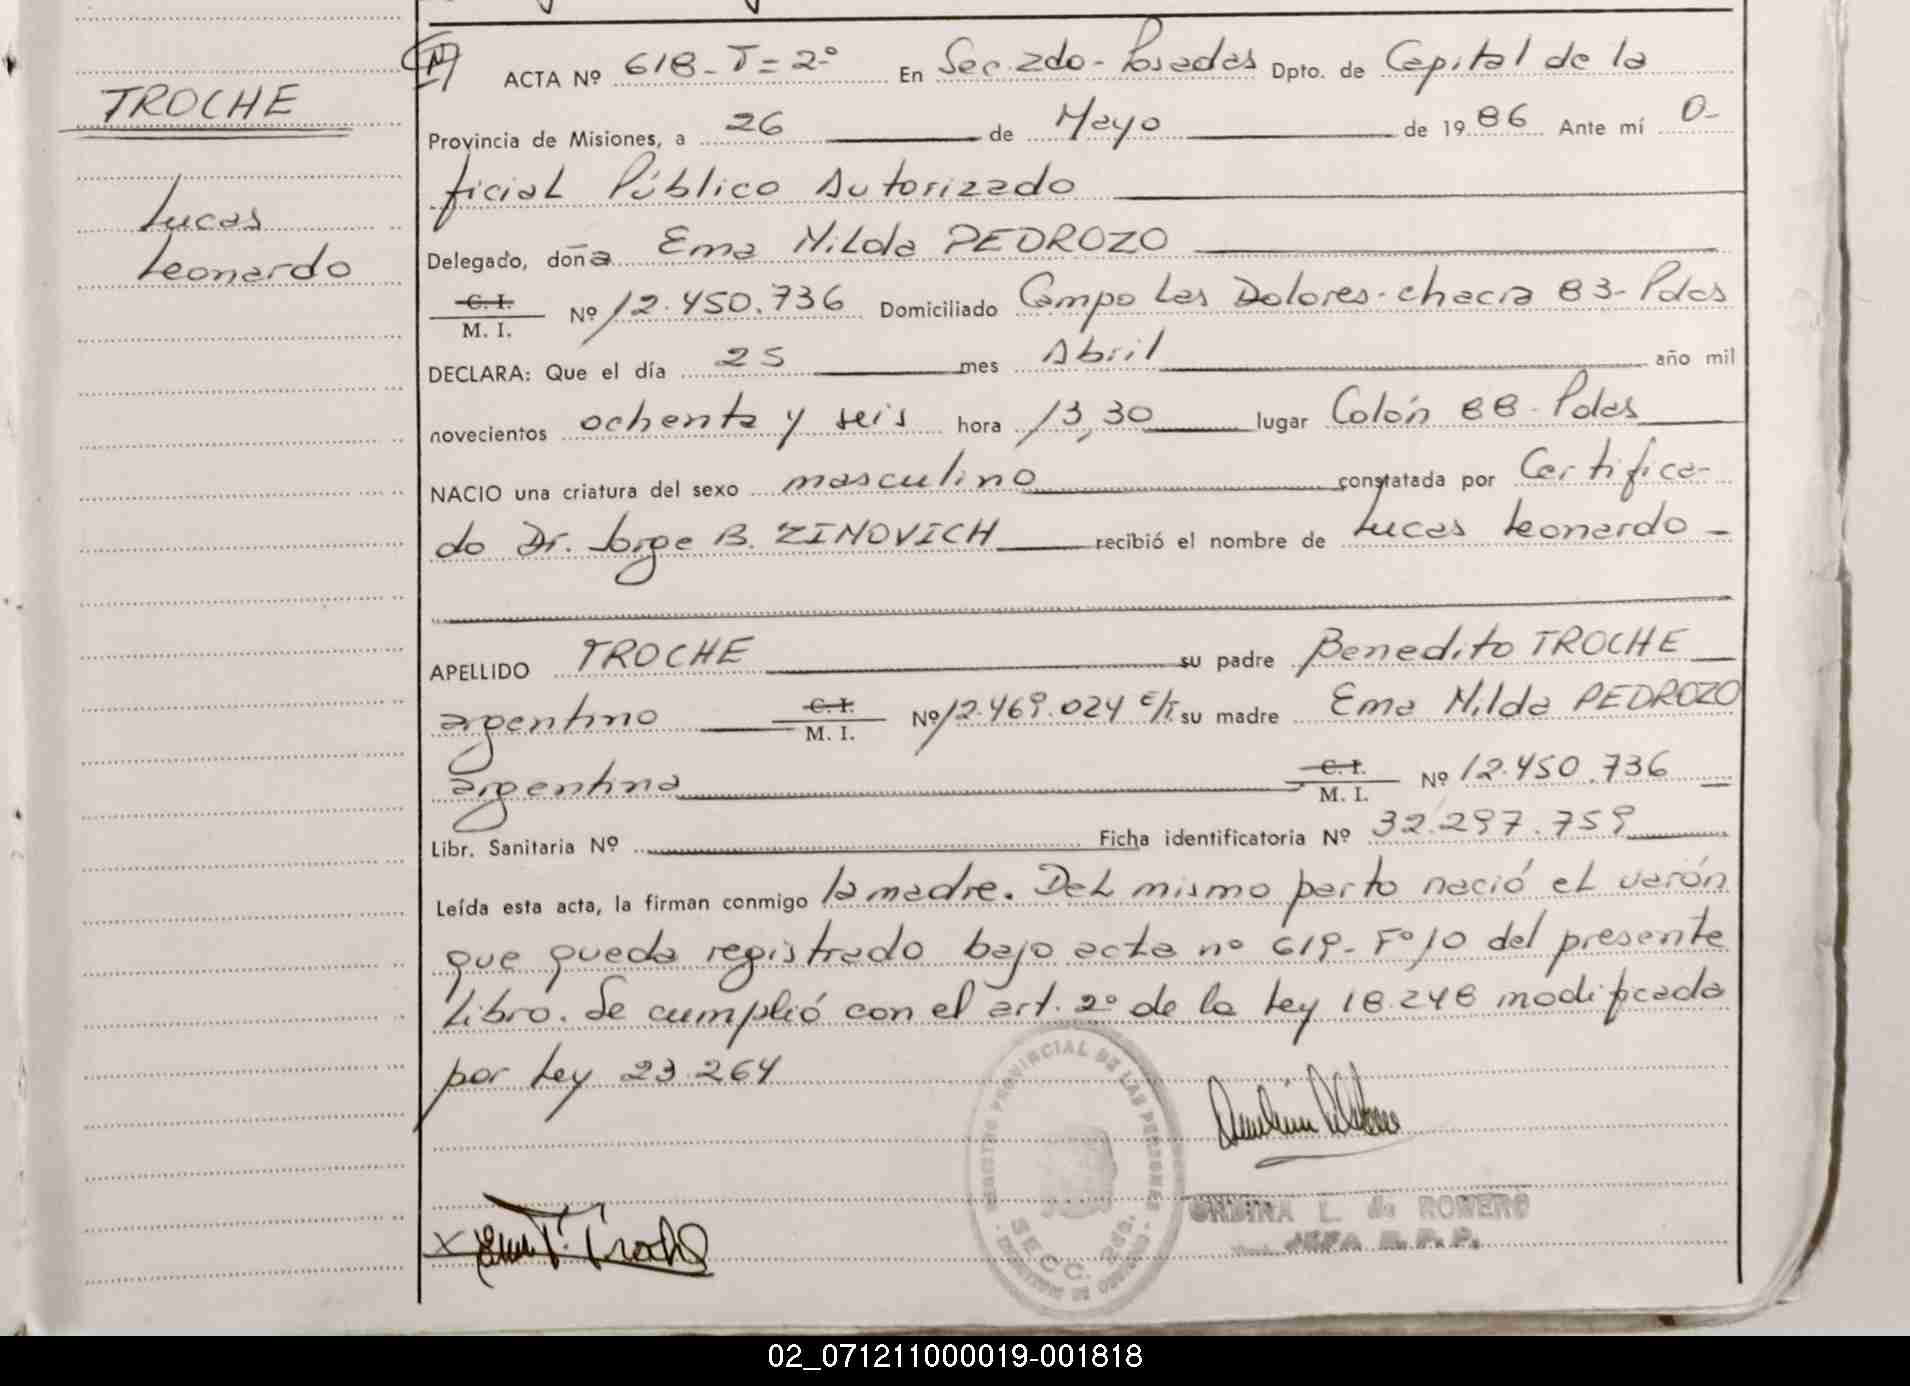 (N) ACTA Nº 618-T=2º En Sec. 2do-Posadas Dpto. de Capital de la
TROCHE
Provincia de Misiones, a 26 de Mayo de 1986 Ante mí O-
ficial Público Autorizado
Lucas
Leonardo
Delegado, doña Ema Nilda PEDROZO
C. I.
M. I. Nº 12.450.736 Domiciliado Campo Las Dolores-chacra 83-Pdas
DECLARA: Que el día 25 mes Abril año mil
novecientos ochenta y seis hora 13,30 lugar Colón 88-Pdas
NACIO una criatura del sexo masculino constatada por Certifica-
do Dr. Jorge B. ZINOVICH recibió el nombre de Lucas Leonardo -
APELLIDO TROCHE su padre Benedito TROCHE
argentino C. I. M. I. Nº 12.469.024 E/T su madre Ema Nilda PEDROZO
argentina C. I. M. I. Nº 12.450.736
Libr. Sanitaria Nº Ficha identificatoria Nº 32.297.759
Leída esta acta, la firman conmigo la madre. Del mismo parto nació el varón
que queda registrado bajo acta nº 619-Fº10 del presente
Libro. Se cumplió con el art. 2º de la Ley 18.248 modificada
por Ley 23.264
REGISTRO PROVINCIAL DE LAS PERSONAS
SECC. 2da.
L. de ROMERO
JEFA
X Troche
02_071211000019-001818